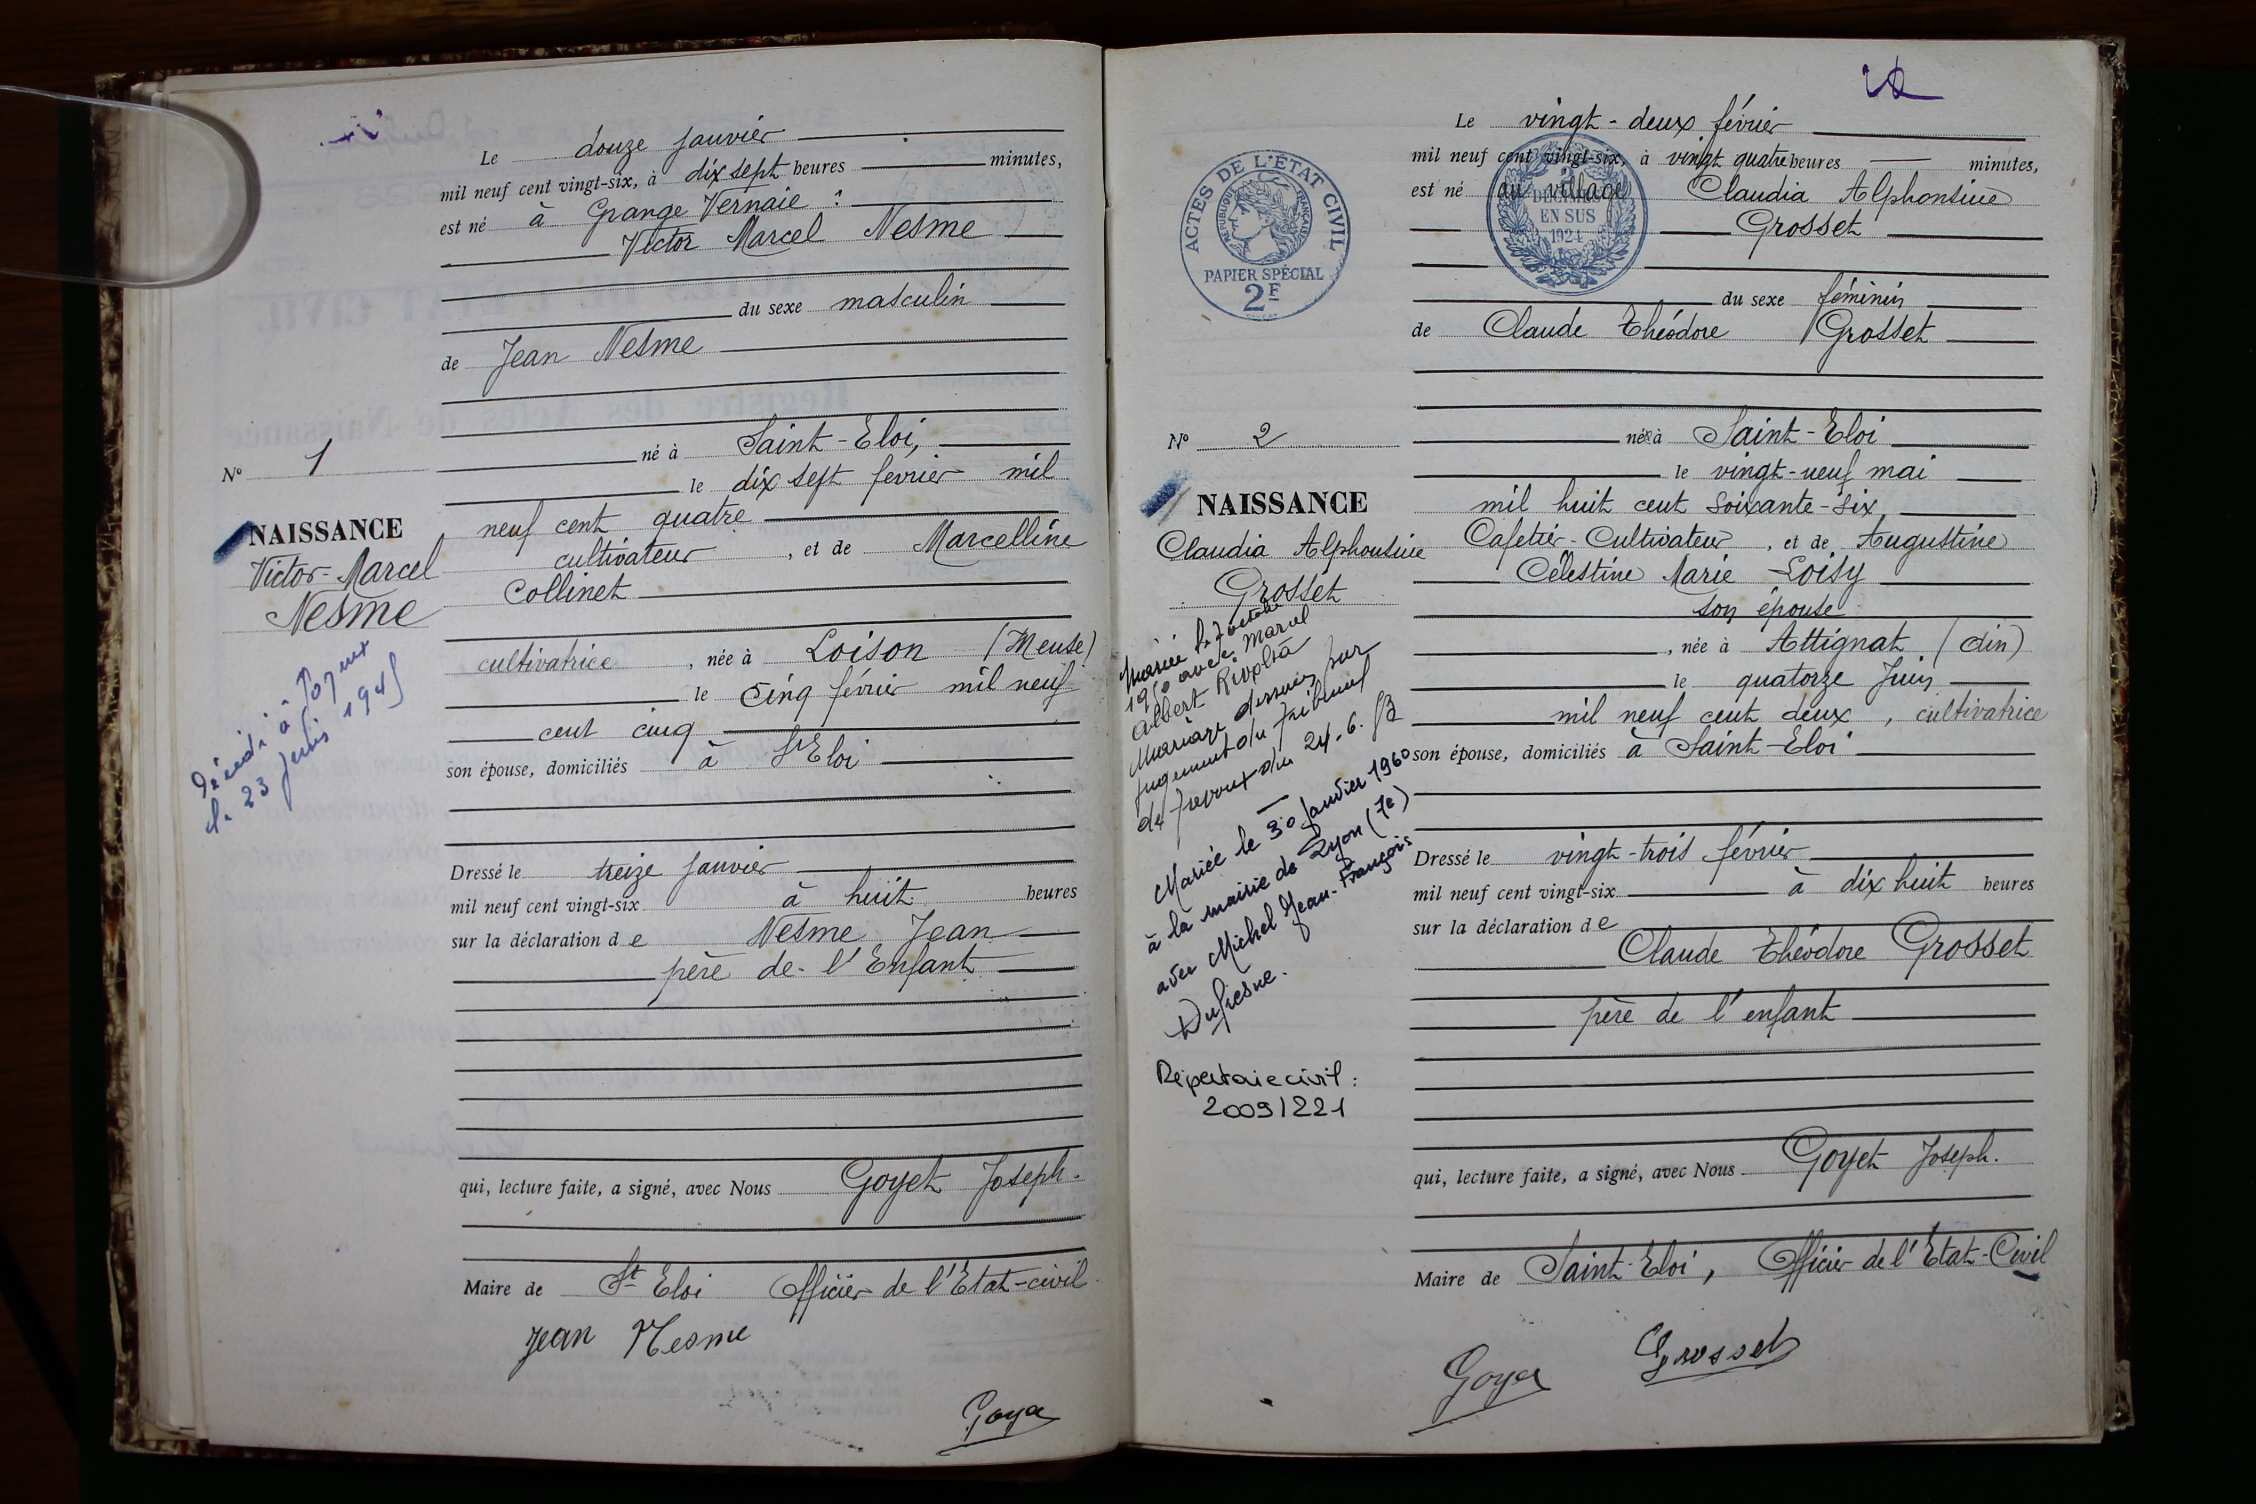 Le douze janvier
mil neuf cent vingt-six, à dix sept heures minutes,
est né à Grange Vernaie :
Victor Marcel Nesme
du sexe masculin
de Jean Nesme
né à Saint-Eloi,
le dix sept fevrier mil
neuf cent quatre
cultivateur, et de Marcelline
Collinet
cultivatrice, née à Loison (Meuse)
le cinq février mil neuf
cent cinq
son épouse, domiciliés à St Eloi
Dressé le treize janvier
mil neuf cent vingt-six à huit heures
sur la déclaration de Nesme Jean
père de l'Enfant
qui, lecture faite, a signé, avec Nous Goyet Joseph.
Maire de St Eloi Officier de l'Etat-civil.
Jean Nesme
Goyet
N° 1
NAISSANCE
Victor-Marcel
Nesme
Décédé à
le 23 1945
Le vingt-deux février
mil neuf cent vingt-six, à vingt quatre heures minutes,
est né au village Claudia Alphonsine
Grosset
du sexe féminin
de Claude Théodore Grosset
né à Saint-Eloi
le vingt-neuf mai
mil huit cent soixante-six,
Cafetier-Cultivateur, et de Augustine
Célestine Marie Loisy
son épouse
, née à Attignat (Ain)
le quatorze Juin
mil neuf cent deux, cultivatrice
son épouse, domiciliés à Saint-Eloi
Dressé le vingt-trois février
mil neuf cent vingt-six à dix huit heures
sur la déclaration de
Claude Théodore Grosset
père de l'enfant
qui, lecture faite, a signé, avec Nous Goyet Joseph.
Maire de Saint-Eloi, Officier de l'Etat-Civil
Goyet
Grosset
ACTES DE L'ÉTAT CIVIL
RÉPUBLIQUE FRANÇAISE
PAPIER SPÉCIAL
2F
2
DÉCIMES
EN SUS
1924
N° 2
NAISSANCE
Claudia Alphonsine
Grosset
Mariée le 7 octobre
1950 avec Marcel
Albert Rivolta
Mariage dissous par
jugement du Tribunal
de Trevoux du 24.6.53
Mariée le 30 Janvier 1960
à la mairie de Lyon (7e)
avec Michel Jean-François
Dufresne.
Répertoire civil :
2009/221